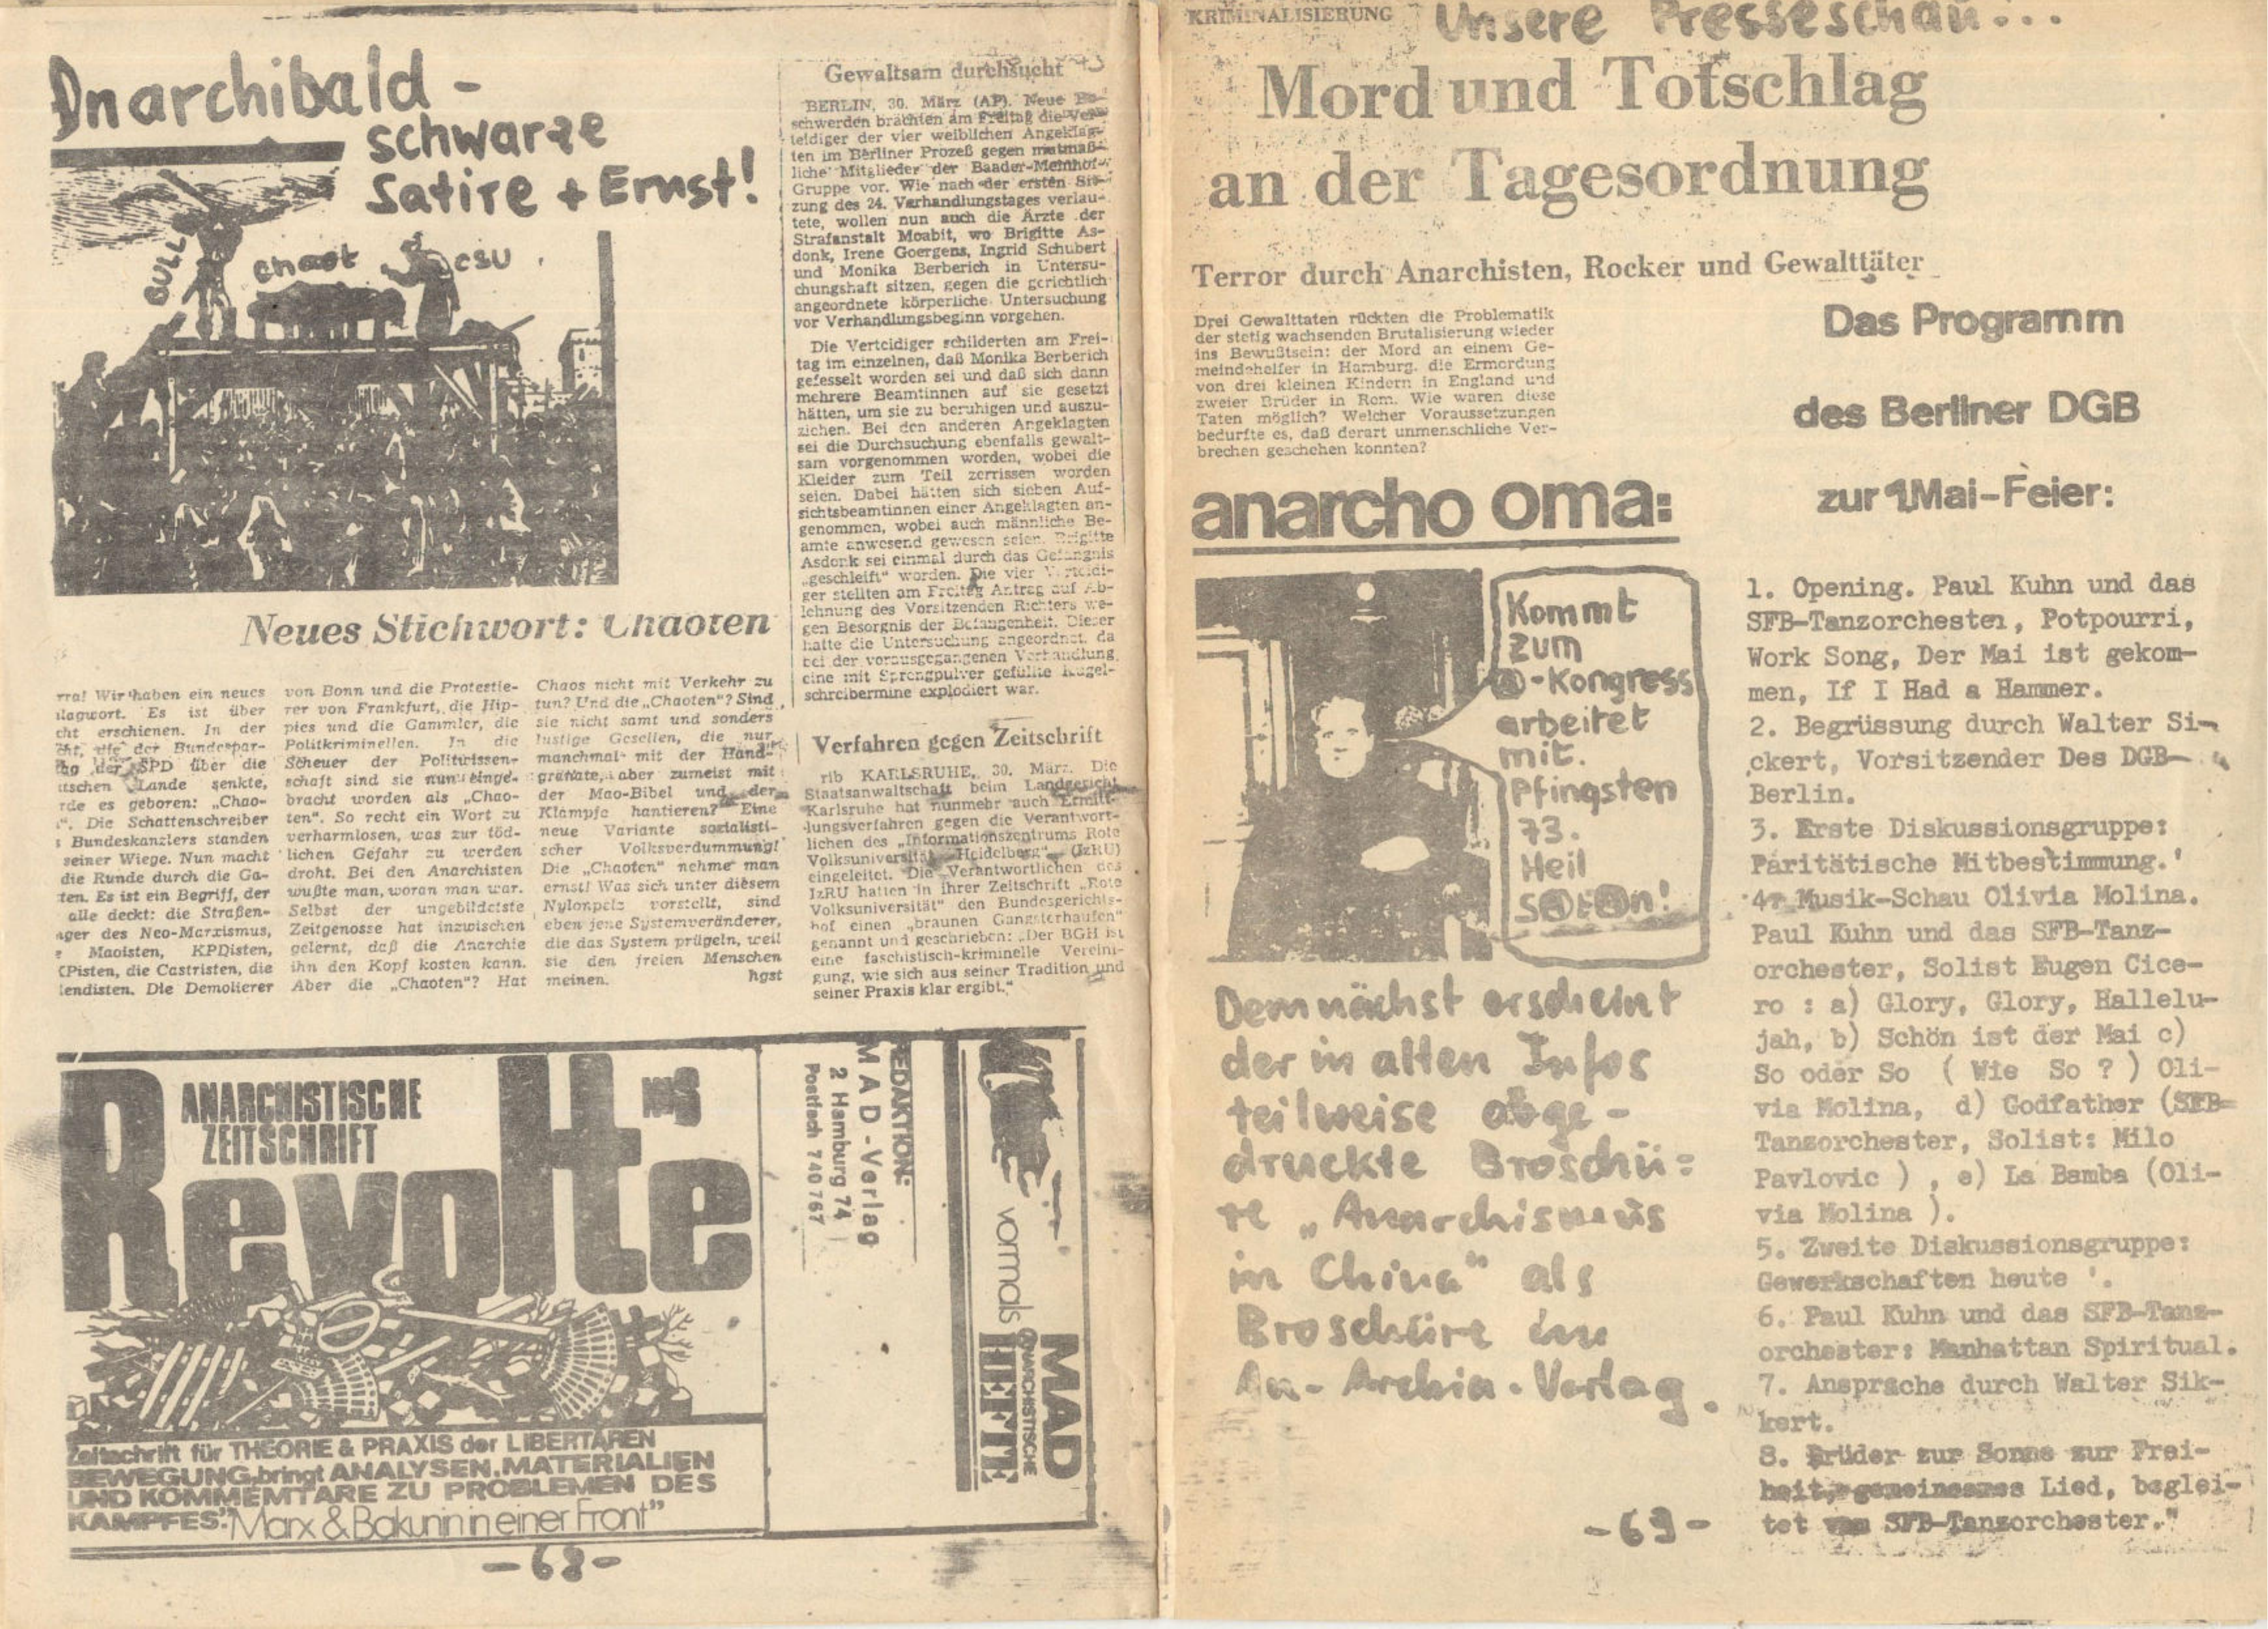 Anarchibald -
schwarze
Satire + Ernst!
BULLE
chaot
CSU
Neues Stichwort: Chaoten
rra! Wir haben ein neues
lagwort. Es ist über
cht erschienen. In der
cht, die der Bundespar-
tag der SPD über die
utschen Lande senkte,
rde es geboren: „Chao-
“. Die Schattenschreiber
s Bundeskanzlers standen
seiner Wiege. Nun macht
die Runde durch die Ga-
ten. Es ist ein Begriff, der
alle deckt: die Straßen-
nger des Neo-Marxismus,
e Maoisten, KPDisten,
KPisten, die Castristen, die
lendisten. Die Demolierer
von Bonn und die Protestie-
rer von Frankfurt, die Hip-
pies und die Gammler, die
Politkriminellen. In die
Scheuer der Politwissen-
schaft sind sie nun einge-
bracht worden als „Chao-
ten“. So recht ein Wort zu
verharmlosen, was zur töd-
lichen Gefahr zu werden
droht. Bei den Anarchisten
wußte man, woran man war.
Selbst der ungebildetste
Zeitgenosse hat inzwischen
gelernt, daß die Anarchie
ihn den Kopf kosten kann.
Aber die „Chaoten“? Hat
Chaos nicht mit Verkehr zu
tun? Und die „Chaoten“? Sind
sie nicht samt und sonders
lustige Gesellen, die nur
manchmal mit der Hand-
granate, aber zumeist mit
der Mao-Bibel und der
Klampfe hantieren? Eine
neue Variante sozialisti-
scher Volksverdummung!
Die „Chaoten“ nehme man
ernst! Was sich unter diesem
Nylonpelz vorstellt, sind
eben jene Systemveränderer,
die das System prügeln, weil
sie den freien Menschen
meinen. hgst
Gewaltsam durchsucht
BERLIN, 30. März (AP). Neue Be-
schwerden brachten am Freitag die Ver-
teidiger der vier weiblichen Angeklag-
ten im Berliner Prozeß gegen mutmaß-
liche Mitglieder der Baader-Meinhof-
Gruppe vor. Wie nach der ersten Sit-
zung des 24. Verhandlungstages verlau-
tete, wollen nun auch die Ärzte der
Strafanstalt Moabit, wo Brigitte As-
donk, Irene Goergens, Ingrid Schubert
und Monika Berberich in Untersu-
chungshaft sitzen, gegen die gerichtlich
angeordnete körperliche Untersuchung
vor Verhandlungsbeginn vorgehen.
Die Verteidiger schilderten am Frei-
tag im einzelnen, daß Monika Berberich
gefesselt worden sei und daß sich dann
mehrere Beamtinnen auf sie gesetzt
hätten, um sie zu beruhigen und auszu-
ziehen. Bei den anderen Angeklagten
sei die Durchsuchung ebenfalls gewalt-
sam vorgenommen worden, wobei die
Kleider zum Teil zerrissen worden
seien. Dabei hätten sich sieben Auf-
sichtsbeamtinnen einer Angeklagten an-
genommen, wobei auch männliche Be-
amte anwesend gewesen seien. Brigitte
Asdonk sei einmal durch das Gefängnis
„geschleift“ worden. Die vier Verteidi-
ger stellten am Freitag Antrag auf Ab-
lehnung des Vorsitzenden Richters we-
gen Besorgnis der Befangenheit. Dieser
hatte die Untersuchung angeordnet, da
bei der vorausgegangenen Verhandlung
eine mit Sprengpulver gefüllte Kugel-
schreibermine explodiert war.
Verfahren gegen Zeitschrift
rib KARLSRUHE, 30. März. Die
Staatsanwaltschaft beim Landgericht
Karlsruhe hat nunmehr auch Ermitt-
lungsverfahren gegen die Verantwort-
lichen des „Informationszentrums Rote
Volksuniversität Heidelberg“ (IzRU)
eingeleitet. Die Verantwortlichen des
IzRU hatten in ihrer Zeitschrift „Rote
Volksuniversität“ den Bundesgerichts-
hof einen „braunen Gangsterhaufen“
genannt und geschrieben: „Der BGH ist
eine faschistisch-kriminelle Vereini-
gung, wie sich aus seiner Tradition und
seiner Praxis klar ergibt.“
ANARCHISTISCHE
ZEITSCHRIFT
Revolte
Zeitschrift für THEORIE & PRAXIS der LIBERTÄREN
BEWEGUNG, bringt ANALYSEN, MATERIALIEN
UND KOMMEMTARE ZU PROBLEMEN DES
KAMPFES: "Marx & Bakunin in einer Front"
REDAKTION:
MAD-Verlag
2 Hamburg 74
Postfach 740767
vormals
MAD
ANARCHISTISCHE
HEFTE
- 68 -
KRIMINALISIERUNG
Unsere Presseschau...
Mord und Totschlag
an der Tagesordnung
Terror durch Anarchisten, Rocker und Gewalttäter
Drei Gewalttaten rückten die Problematik
der stetig wachsenden Brutalisierung wieder
ins Bewußtsein: der Mord an einem Ge-
meindehelfer in Hamburg, die Ermordung
von drei kleinen Kindern in England und
zweier Brüder in Rom. Wie waren diese
Taten möglich? Welcher Voraussetzungen
bedurfte es, daß derart unmenschliche Ver-
brechen geschehen konnten?
anarcho oma:
Kommt
zum
Ⓐ-Kongress
arbeitet
mit.
Pfingsten
73.
Heil
SⒶtⒶn!
Demnächst erscheint
der in alten Infos
teilweise abge-
druckte Broschü-
re „Anarchismus
in China“ als
Broschüre im
An-Archia-Verlag.
Das Programm
des Berliner DGB
zur 1Mai-Feier:
1. Opening. Paul Kuhn und das
SFB-Tanzorchester, Potpourri,
Work Song, Der Mai ist gekom-
men, If I Had a Hammer.
2. Begrüssung durch Walter Si-
ckert, Vorsitzender Des DGB-
Berlin.
3. Erste Diskussionsgruppe:
Paritätische Mitbestimmung.'
4. Musik-Schau Olivia Molina.
Paul Kuhn und das SFB-Tanz-
orchester, Solist Eugen Cice-
ro : a) Glory, Glory, Hallelu-
jah, b) Schön ist der Mai c)
So oder So ( Wie So ? ) Oli-
via Molina, d) Godfather (SFB-
Tanzorchester, Solist: Milo
Pavlovic ) , e) La Bamba (Oli-
via Molina ).
5. Zweite Diskussionsgruppe:
Gewerkschaften heute '.
6. Paul Kuhn und das SFB-Tanz-
orchester: Manhattan Spiritual.
7. Ansprache durch Walter Sik-
kert.
8. Brüder zur Sonne zur Frei-
heit, gemeinsames Lied, beglei-
tet vom SFB-Tanzorchester."
- 69 -